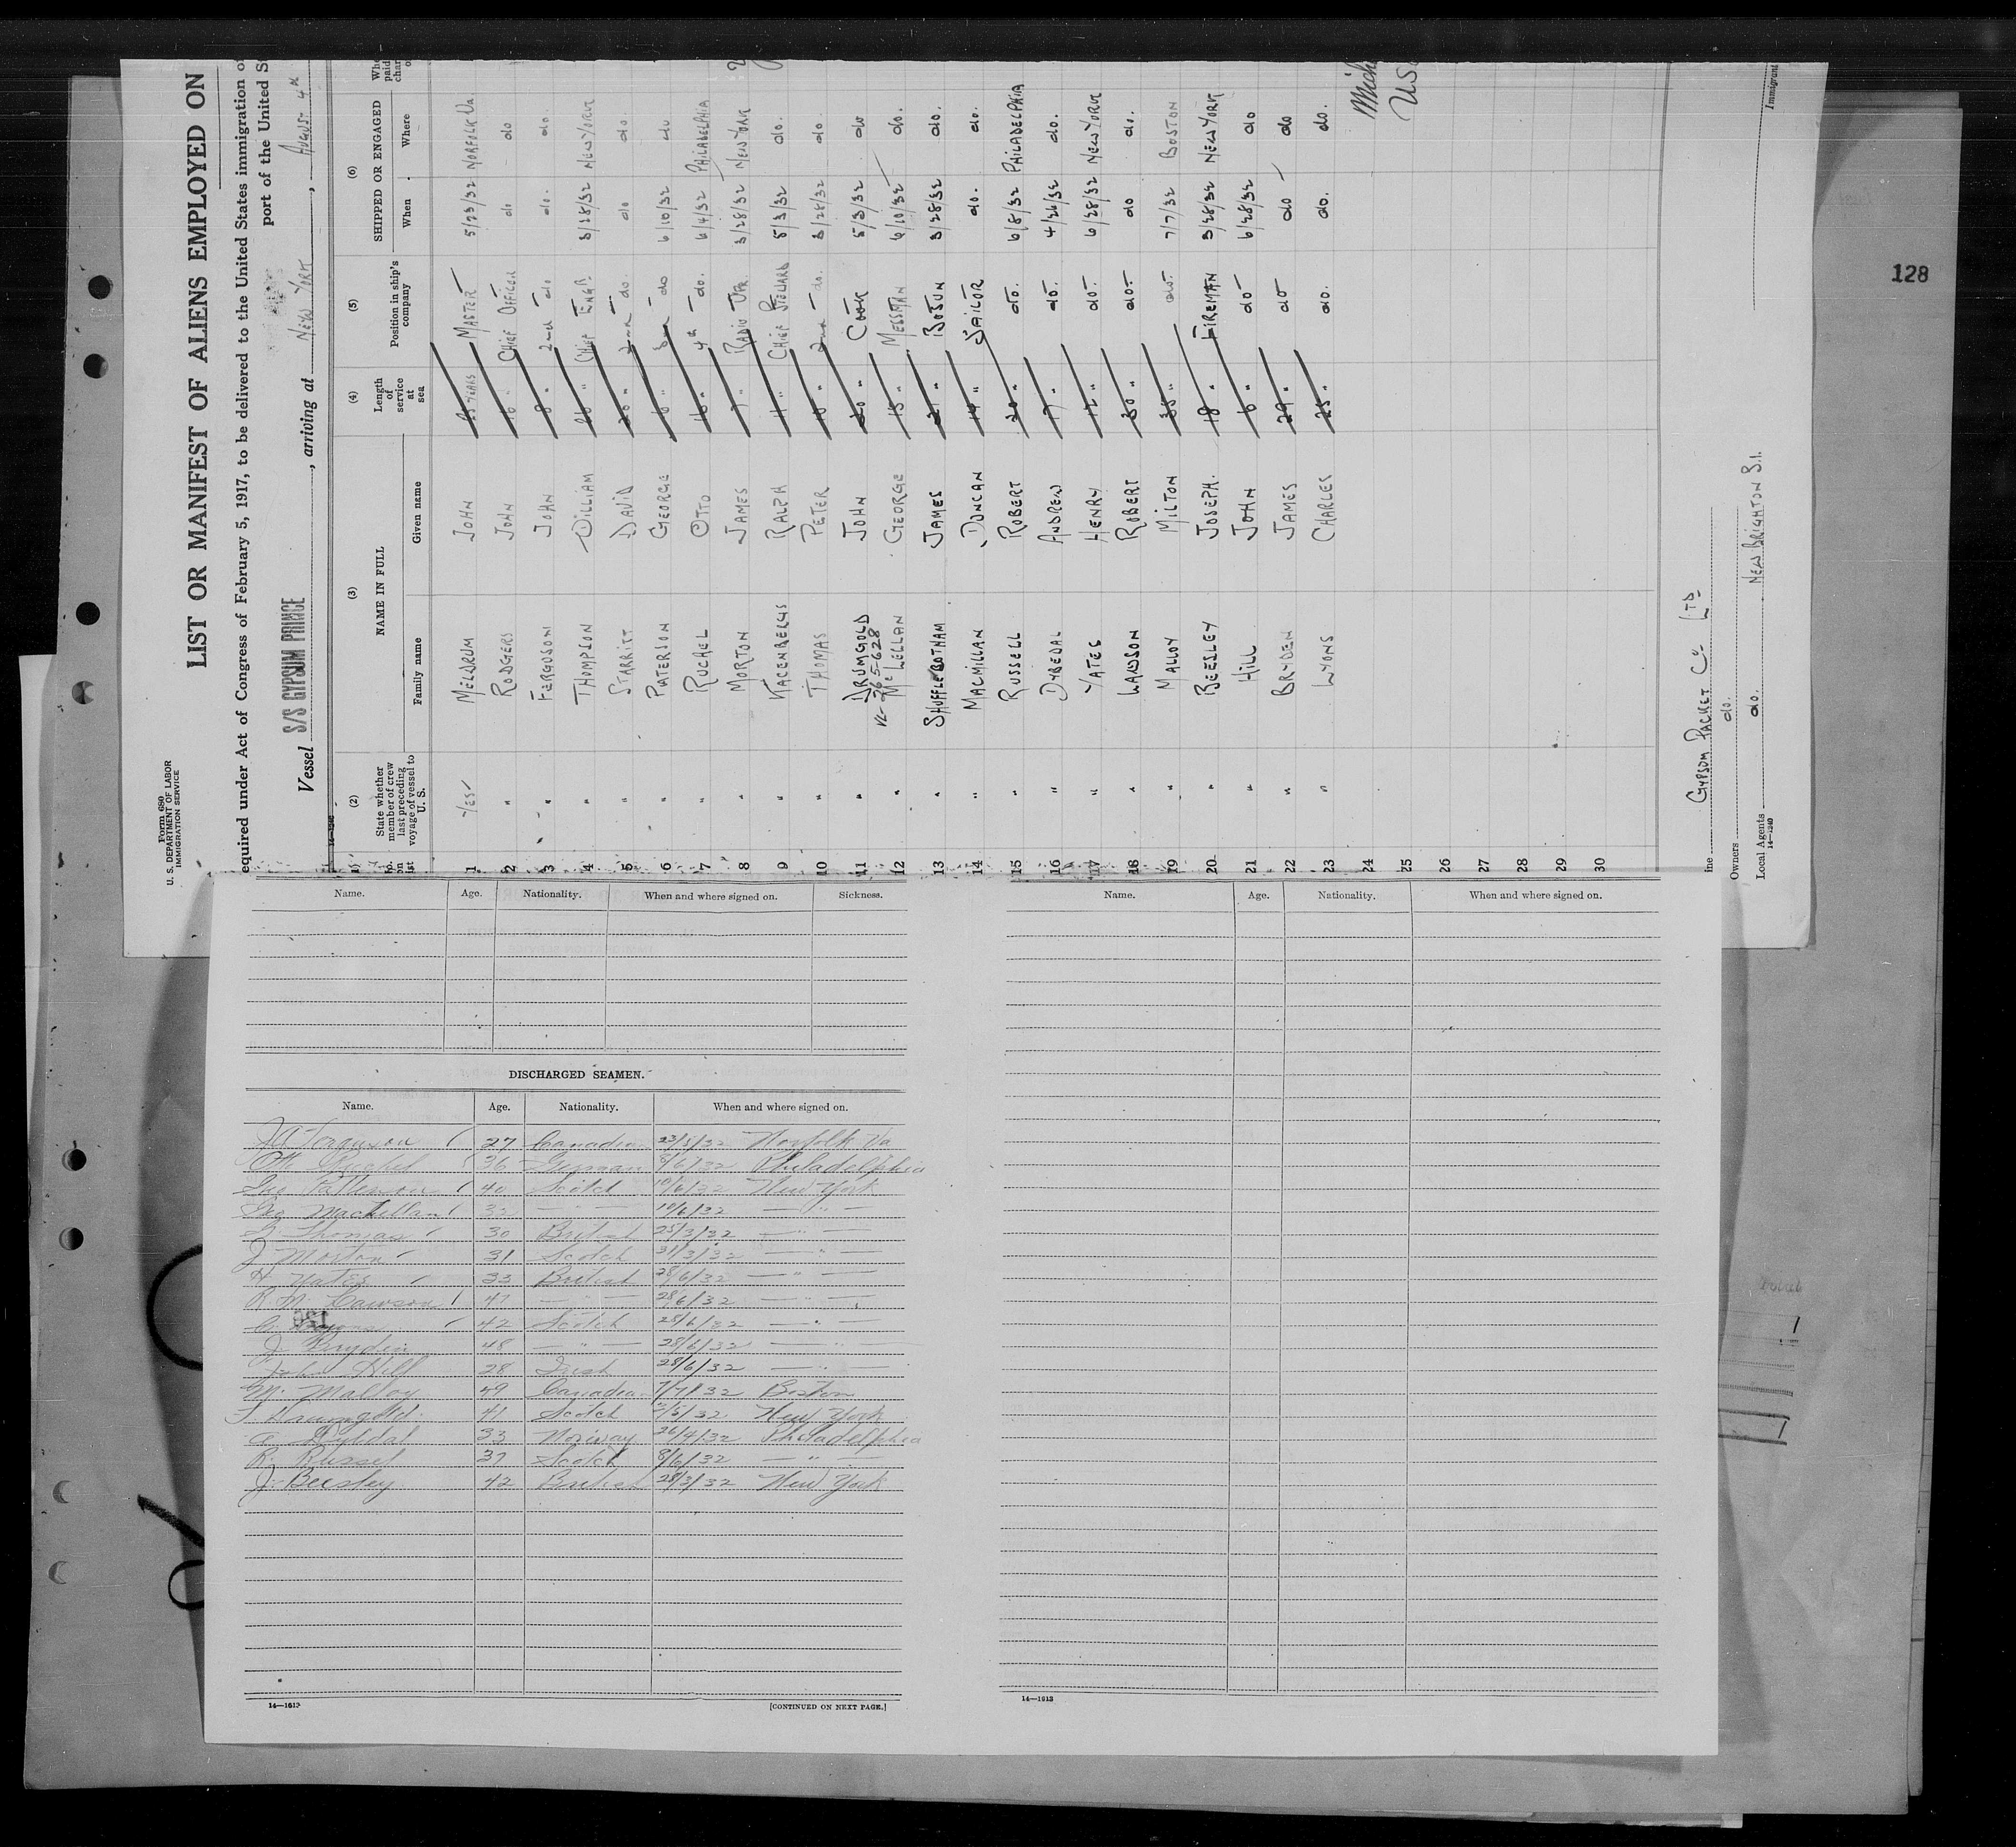 128
Form 680
U. S. DEPARTMENT OF LABOR
IMMIGRATION SERVICE
LIST OR MANIFEST OF ALIENS EMPLOYED ON
equired under Act of Congress of February 5, 1917, to be delivered to the United States immigration of
port of the United St
Vessel S/S GYPSUM PRINCE, arriving at NEW YORK, AUGUST 4th
14-1240
(2) (3) (4) (5) (6)
State whether member of crew last preceding voyage of vessel to U. S. NAME IN FULL Length of service at sea Position in ship's company SHIPPED OR ENGAGED
Family name Given name When Where
1 YES MELDRUM JOHN 25 YEARS MASTER 5/23/32 NORFOLK VA.
2 " RODGERS JOHN 16 " CHIEF OFFICER do do
3 " FERGUSON JOHN 8 " 2nd do do. do.
4 " THOMPSON WILLIAM 26 " CHIEF ENGR. 3/28/32 NEW YORK
5 " STARRITT DAVID 20 " 2nd do. do do
6 " PATERSON GEORGE 16 " do 6/10/32 do
7 " RUCHEL OTTO 16 " 4th do. 6/4/32 PHILADELPHIA
8 " MORTON JAMES 7 " RADIO OPR. 3/28/32 NEW YORK
9 " RALPH " CHIEF STEWARD 5/3/32 do.
10 " THOMAS PETER 10 " 2nd do. 3/28/32 do.
11 " DRUMGOLD JOHN 20 " COOK 5/3/32 do
265-628
12 " McLELLAN GEORGE 15 " MESSMAN 6/10/32 do.
13 " SHUFFLEBOTHAM JAMES 21 " BOSUN 3/28/32 do.
14 " MACMILLAN DUNCAN 14 " SAILOR do. do.
15 " RUSSELL ROBERT 20 " do. 6/8/32 PHILADELPHIA
16 " DYREDAL ANDREW 17 " do. 4/26/32 do.
17 " YATES HENRY 12 " do. 6/28/32 NEW YORK
18 " LAWSON ROBERT 30 " do. do do.
19 " MALLOY MILTON 35 " do. 7/7/32 BOSTON
20 " BEESLEY JOSEPH. 18 " FIREMAN 3/28/32 NEW YORK
21 " HILL JOHN 6 " do 6/28/32 do
22 " BRYDEN JAMES 29 " do do do
23 " LYONS CHARLES 25 " do. do. do.
24
25
26
27
28
29
30
ine GYPSUM PACKET Co. LTD
Owners do.
Local Agents do. NEW BRIGHTON S.I.
14-1240
Immigrant
Name. Age. Nationality. When and where signed on. Sickness.
DISCHARGED SEAMEN.
Name. Age. Nationality. When and where signed on.
J A Ferguson 27 Canadian 23/5/32 Norfolk Va
Otto Ruchel 36 German 4/6/32 Philadelphia
Geo Patterson 40 Scotch 10/6/32 New York
Geo MacLellan 32 — " — 10/6/32 — " —
P. Thomas 30 British 25/3/32 — " —
J Morton 31 Scotch 31/3/32 — " —
H Yates 33 British 28/6/32 — " —
R. M. Lawson 47 — " — 28/6/32 — " —
C. Lyons 42 Scotch 28/6/32 — " —
J. Bryden 48 — " — 28/6/32 — " —
John Hill 28 Irish 28/6/32 — " —
M. Malloy 49 Canadian 7/7/32 Boston
J. Drumgold 41 Scotch /5/32 New York
A Dyredal 33 Norway 26/4/32 Philadelphia
R. Russel 37 Scotch 8/6/32 — " —
J. Beesley 42 British 28/3/32 New York
14—1613 [CONTINUED ON NEXT PAGE.]
Name. Age. Nationality. When and where signed on.
14—1613